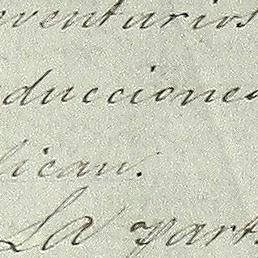 venturios
ducciones
lican.
La part